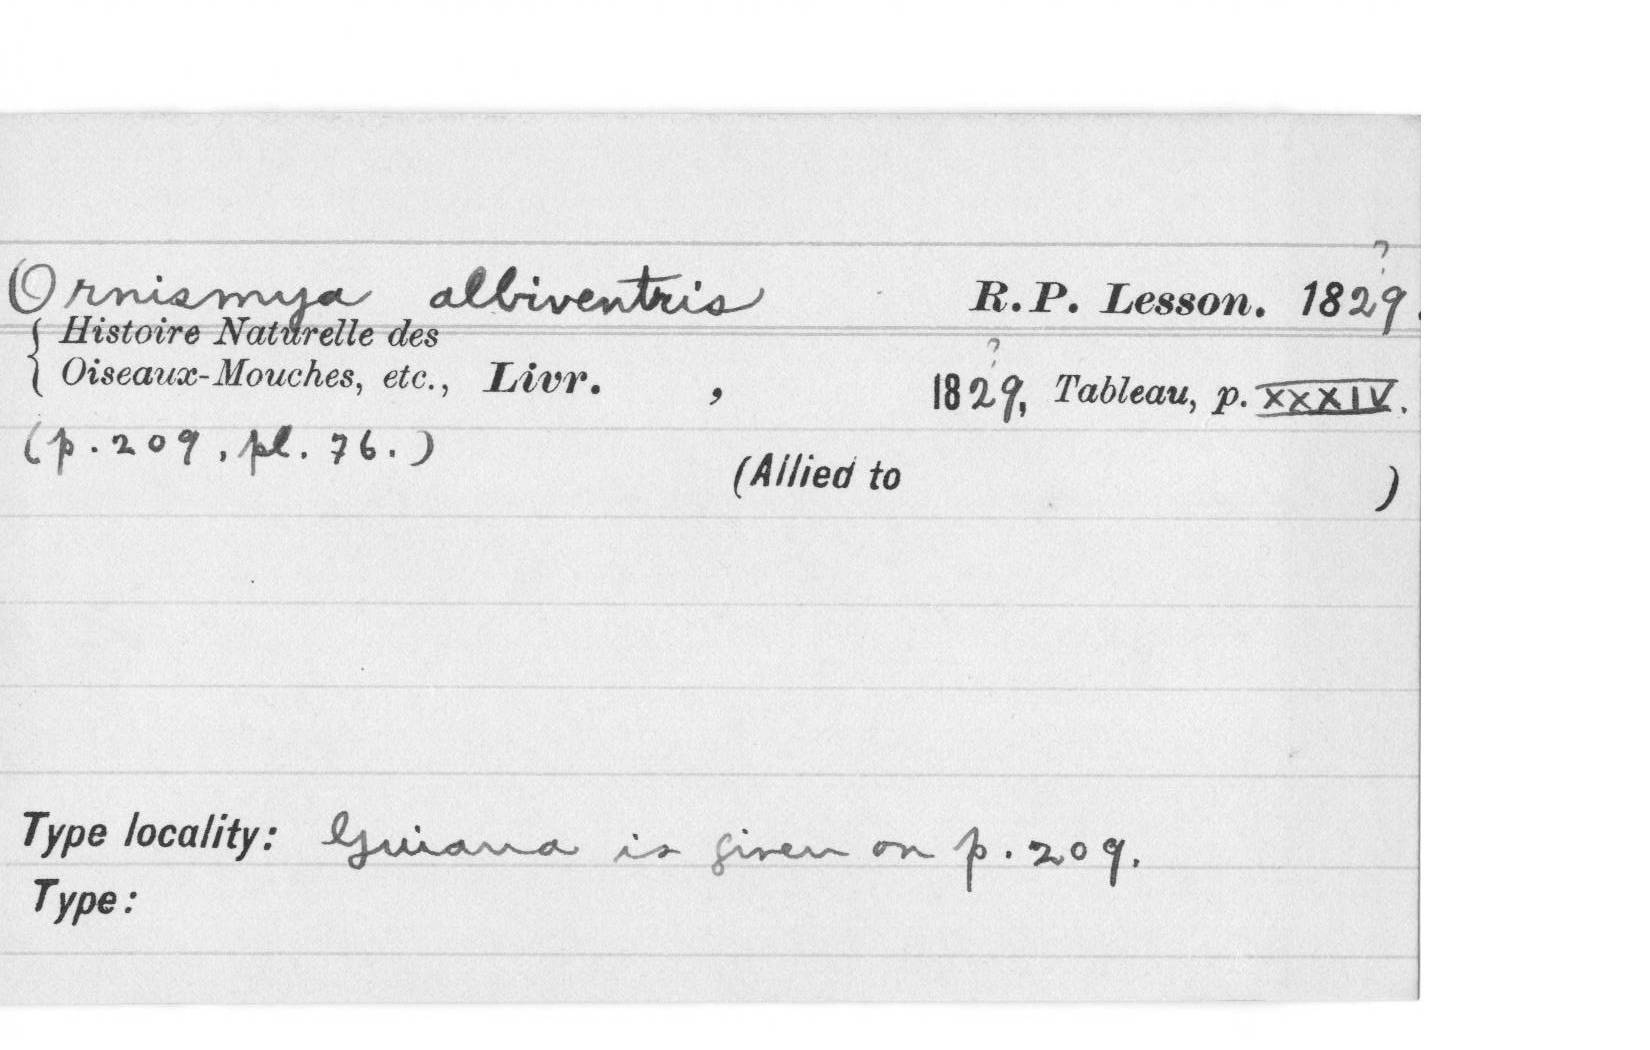 ?
Ornismya albiventris R.P. Lesson. 1829.
{ Histoire Naturelle des
?
Oiseaux-Mouches, etc., Livr. , 1829, Tableau, p. XXXIV.
(p. 209, pl. 76.)
(Allied to )
Type locality: Guiana is given on p. 209.
Type: